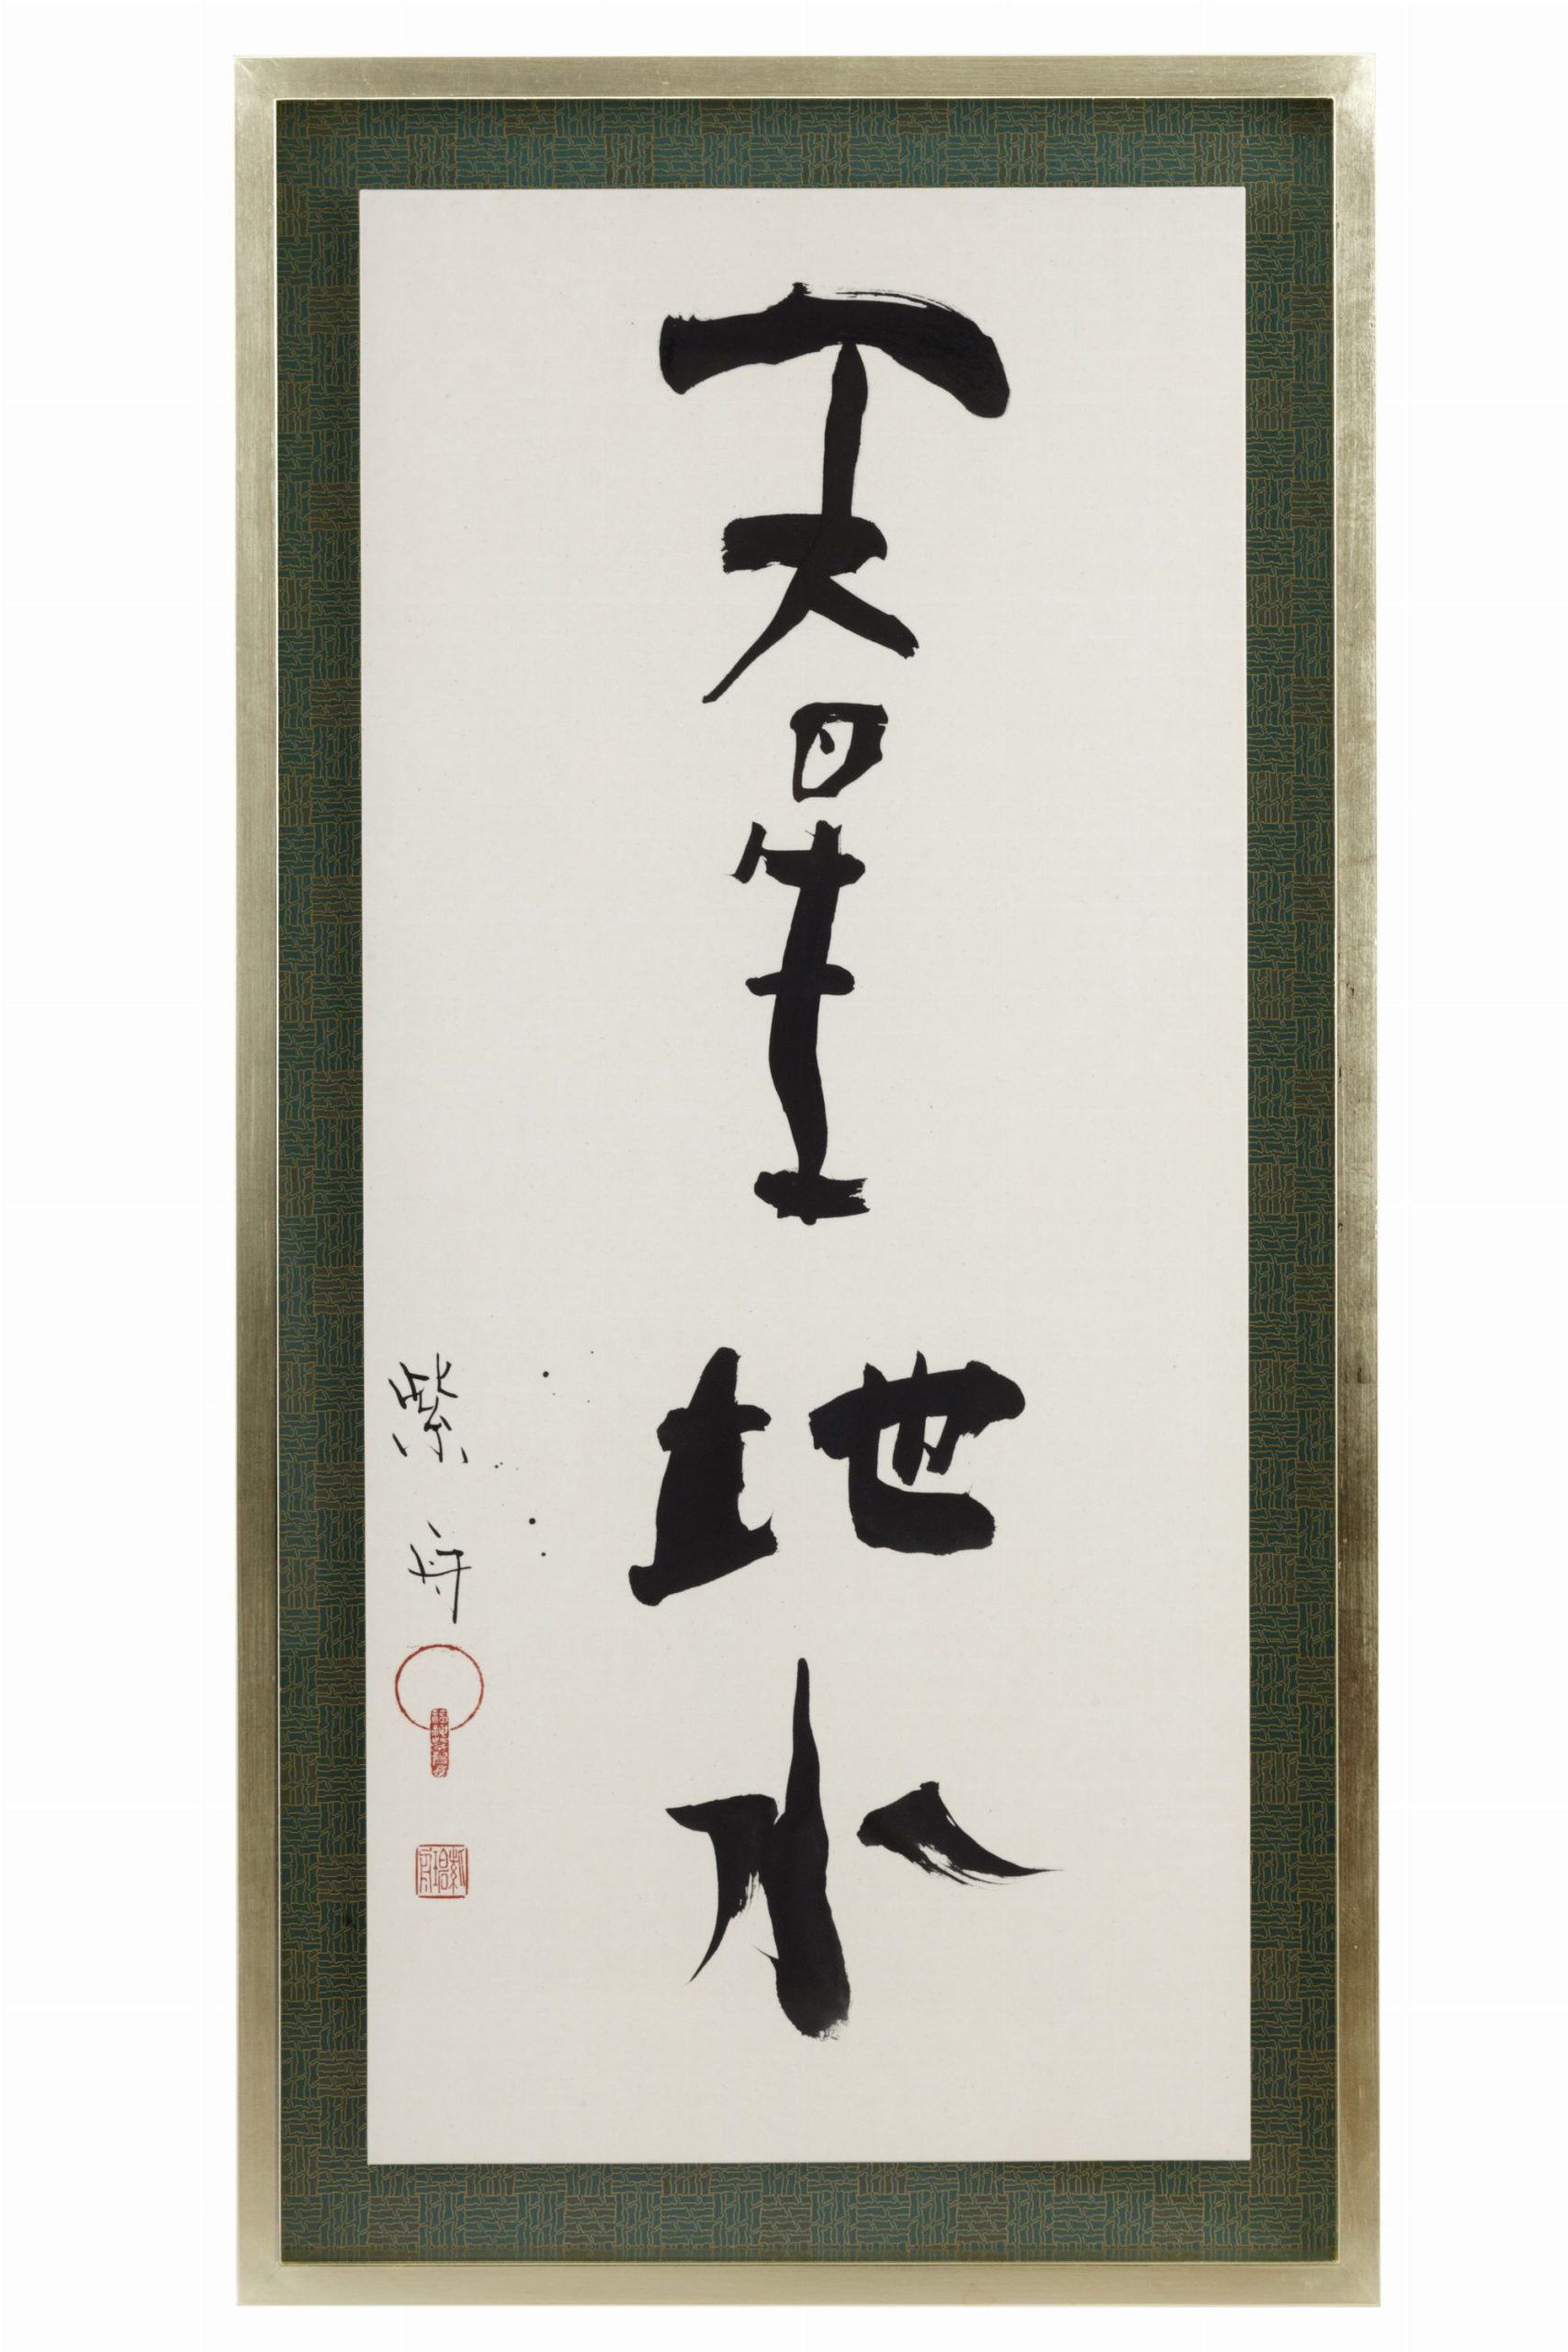 天星地水
紫舟